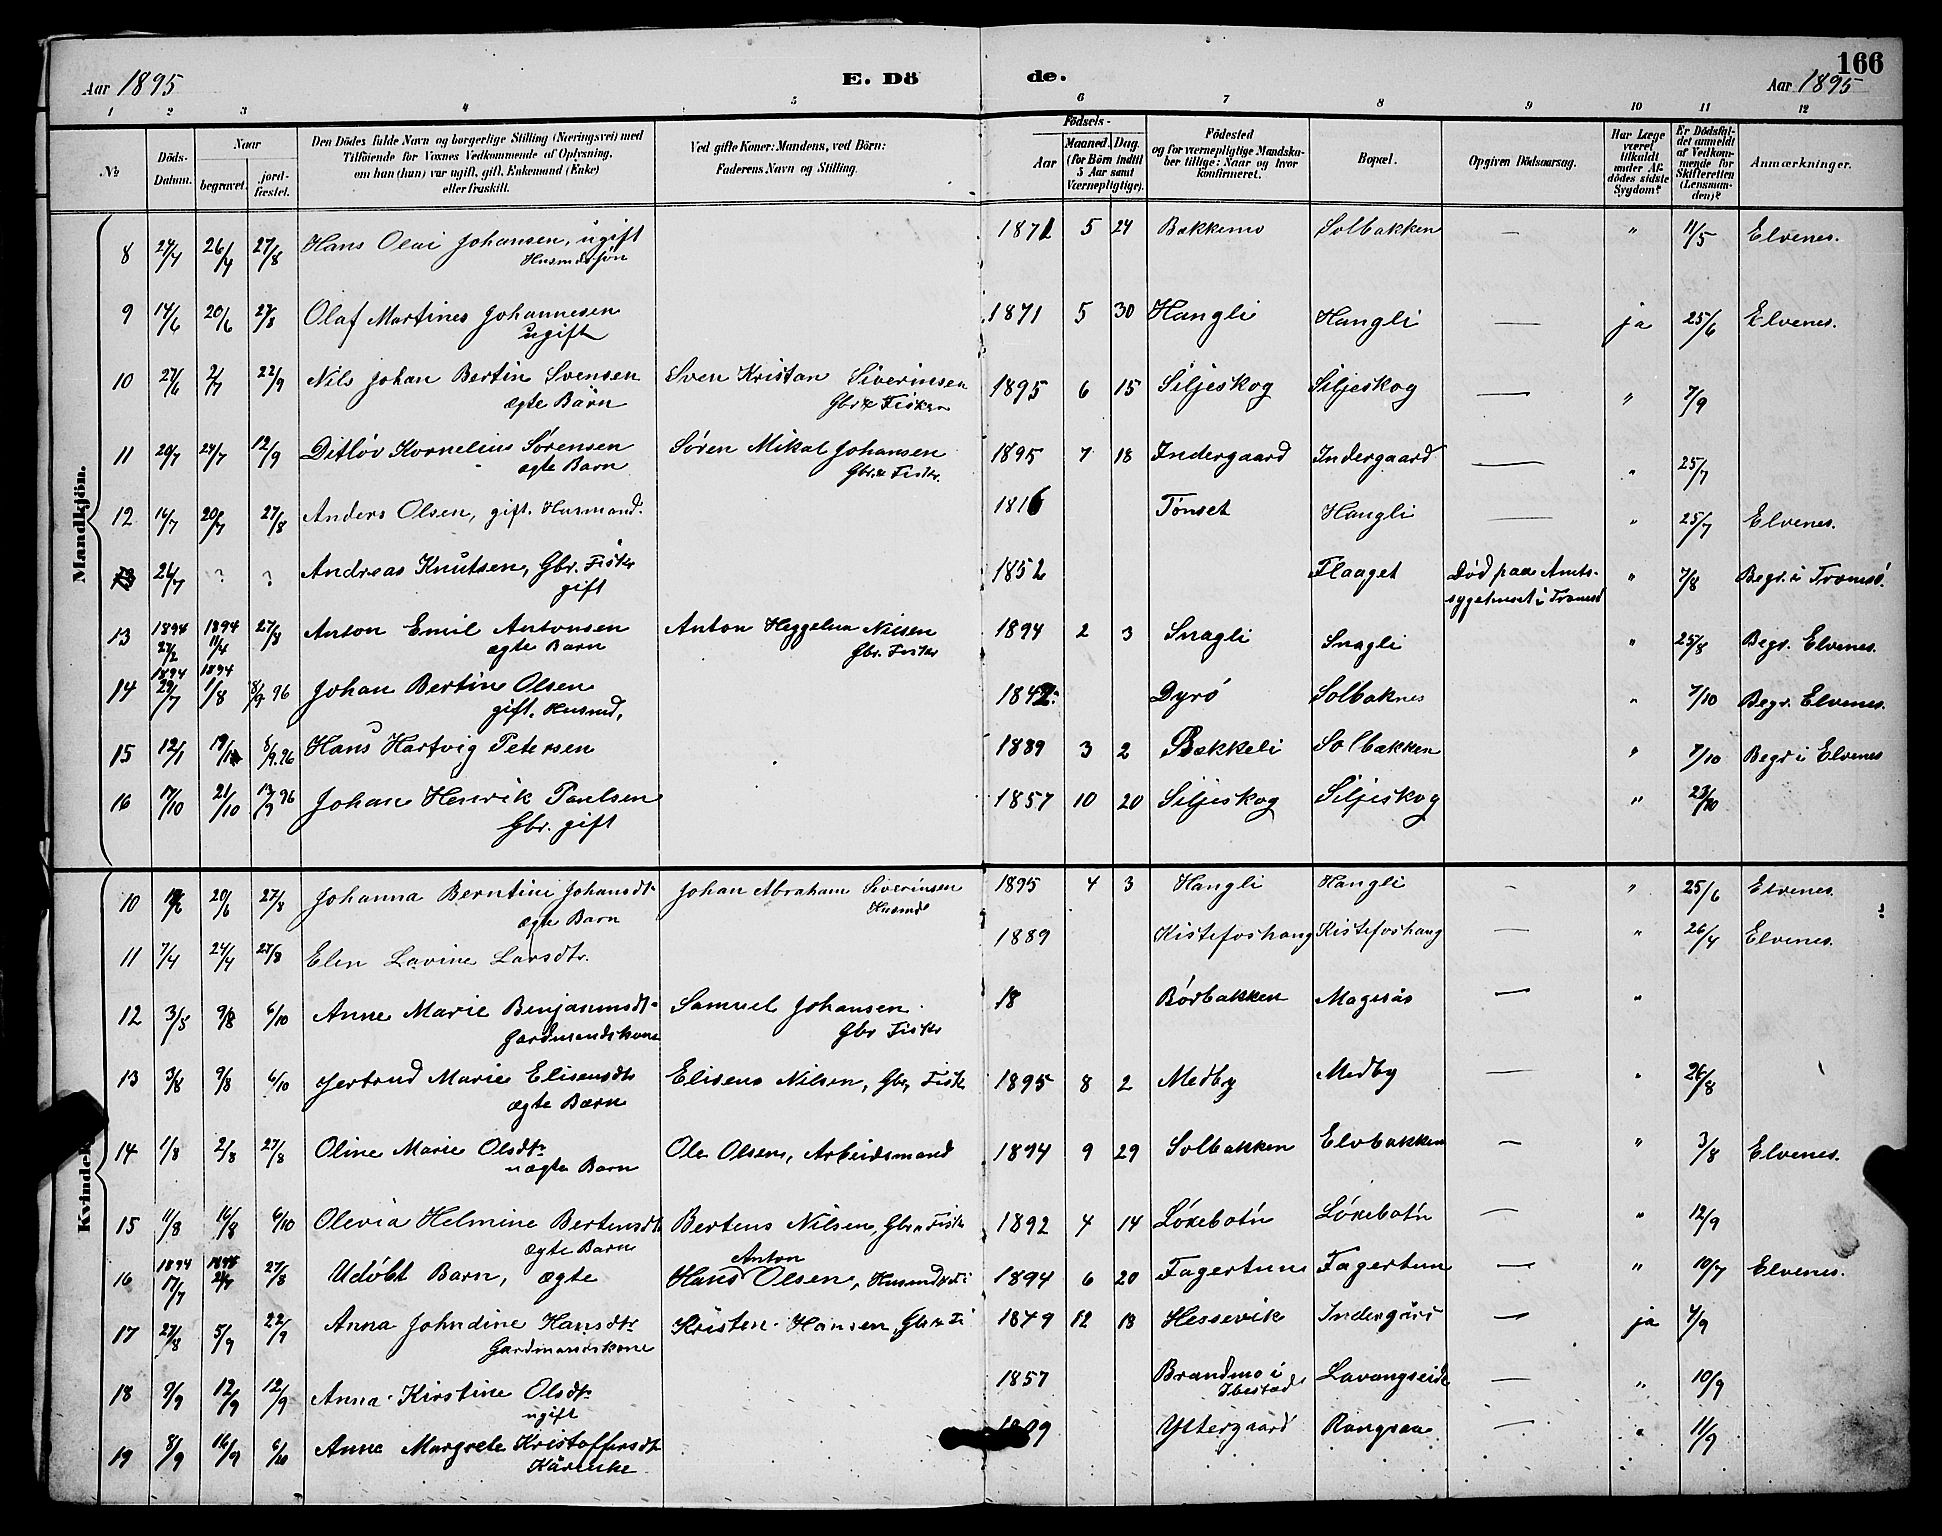 166
Aar 1895 E. Dö de. Aar 1895
1 2 3 4 5 6 7 8 9 10 11 12
No
Döds-Datum.
Naar
begravet. jordfæstet.
Den Dödes fulde Navn og borgerlige Stilling (Næringsvei) med
Tilföiende for Voxnes Vedkommende af Oplysning,
om han (hun) var ugift, gift, Enkemand (Enke)
eller fraskilt.
Ved gifte Koner: Mandens, ved Börn:
Faderens Navn og Stilling.
Födsels-
Aar Maaned. Dag.
(for Börn indtil
5 Aar samt
Værnepligtige).
Födested
og for værnepligtige Mandskaber tillige: Naar og hvor
konfirmeret.
Bopæl.
Opgiven Dödsaarsag.
Har Læge
været
tilkaldt
under Afdödes sidste
Sygdom?
Er Dödsfaldet anmeldt
af Vedkommende for
Skifteretten
(Lensmanden)?
Anmærkninger.
Mandkjön.
8 24/4 26/4 27/8 Hans Olai Johansen, ugift 1871 5 24 Bakkemo Solbakken — " 11/5 Elvenes.
Husmdssön
9 14/6 20/6 27/8 Olaf Martines Johannesen 1871 5 30 Hangli Hangli — ja 25/6 Elvenes.
ugift
10 27/6 2/7 22/9 Nils Johan Bertin Svensen Sven Kristan Siverinsen 1895 6 15 Siljeskog Siljeskog — " 7/9
ægte Barn Gbr & Fisker
11 20/7 24/7 12/9 Ditløv Kornelius Sørensen Søren Mikal Johansen 1895 7 18 Indergaard Indergaard — " 25/7
ægte Barn Gbr. & Fisker.
12 14/7 20/7 27/8 Anders Olsen, gift. Husmand. 1816 Tønset Hangli — " 25/7 Elvenes.
13 26/7 ? ? Andreas Knutsen, Gbr. Fisker 1852 Flaaget Død paa Amts- " 7/8 Begr. i Tromsö.
gift sygehuset i Tromsö
13 1894 27/2 1894 11/4 27/8 Anton Emil Antonsen Anton Heggelun Nilsen 1894 2 3 Snagli Snagli " 25/8 Begr. Elvenes.
ægte Barn Gbr. Fisker
14 1894 29/7 1894 1/8 8/9 96 Johan Bertine Olsen 1842 Dyrö Solbaknes " 7/10 Begr. Elvenes.
gift. Husmd.
15 12/1 8/9.96 Hans Hartvig Petersen 1889 3 2 Bakkeli Solbakken " 7/10 Begr i Elvenes
16 17/10 21/10 13/9 96 Johan Henrik Paulsen 1857 10 20 Siljeskog Siljeskog " 23/10
Gbr. gift
Kvindek
10 20/6 27/8 Johanna Berntine Johansdtr Johan Abraham Siverinsen 1895 4 3 Hangli Hangli — " 25/6 Elvenes.
ægte Barn Husmd
11 7/4 24/4 27/8 Elen Lavine Larsdtr. 1889 Kistefoshaug Kistefoshaug — " 26/4 Elvenes.
12 3/5 9/8 6/10 Anne Marie Benjaminsdtr Samuel Johansen 18 Børbakken Magesås — "
Gardmandskone Gbr Fisker
13 3/8 9/8 6/10 Jertrud Marie Elisensdtr Elisens Nilsen, Gbr, Fisker 1895 8 2 Medby Medby — " 26/8
ægte Barn
14 1/8 2/8 27/8 Oline Marie Olsdtr Ole Olsen, Arbeidsmand 1894 9 29 Solbakken Elvbakken — " 3/8 Elvenes.
uægte Barn
15 11/8 16/8 6/10 Olevia Helmine Bertensdtr Bertens Nilsen, Gbr. Fisker 1892 4 14 Løksebotn Løksebotn — " 12/9
ægte Barn
16 1894 17/7 1894 27/8 Udøbt Barn, ægte Hans Anton Olsen, 1894 6 20 Fagertun Fagertun — " 10/7 Elvenes.
17 27/8 5/9 22/9 Anna Johndine Hansdtr Kristen Hansen, Gbr 1849 12 18 Hessevik Indergård — ja 4/9
Gardmandskone
18 9/9 12/9 12/9 Anna Kirstine Olsdtr 1857 Brandmo i Ibestad Lavangseide — " 10/9
ugift
19 8/9 16/9 6/10 Anne Margrete Kristoffersdtr Yttergaard — " 11/9
Kårenke